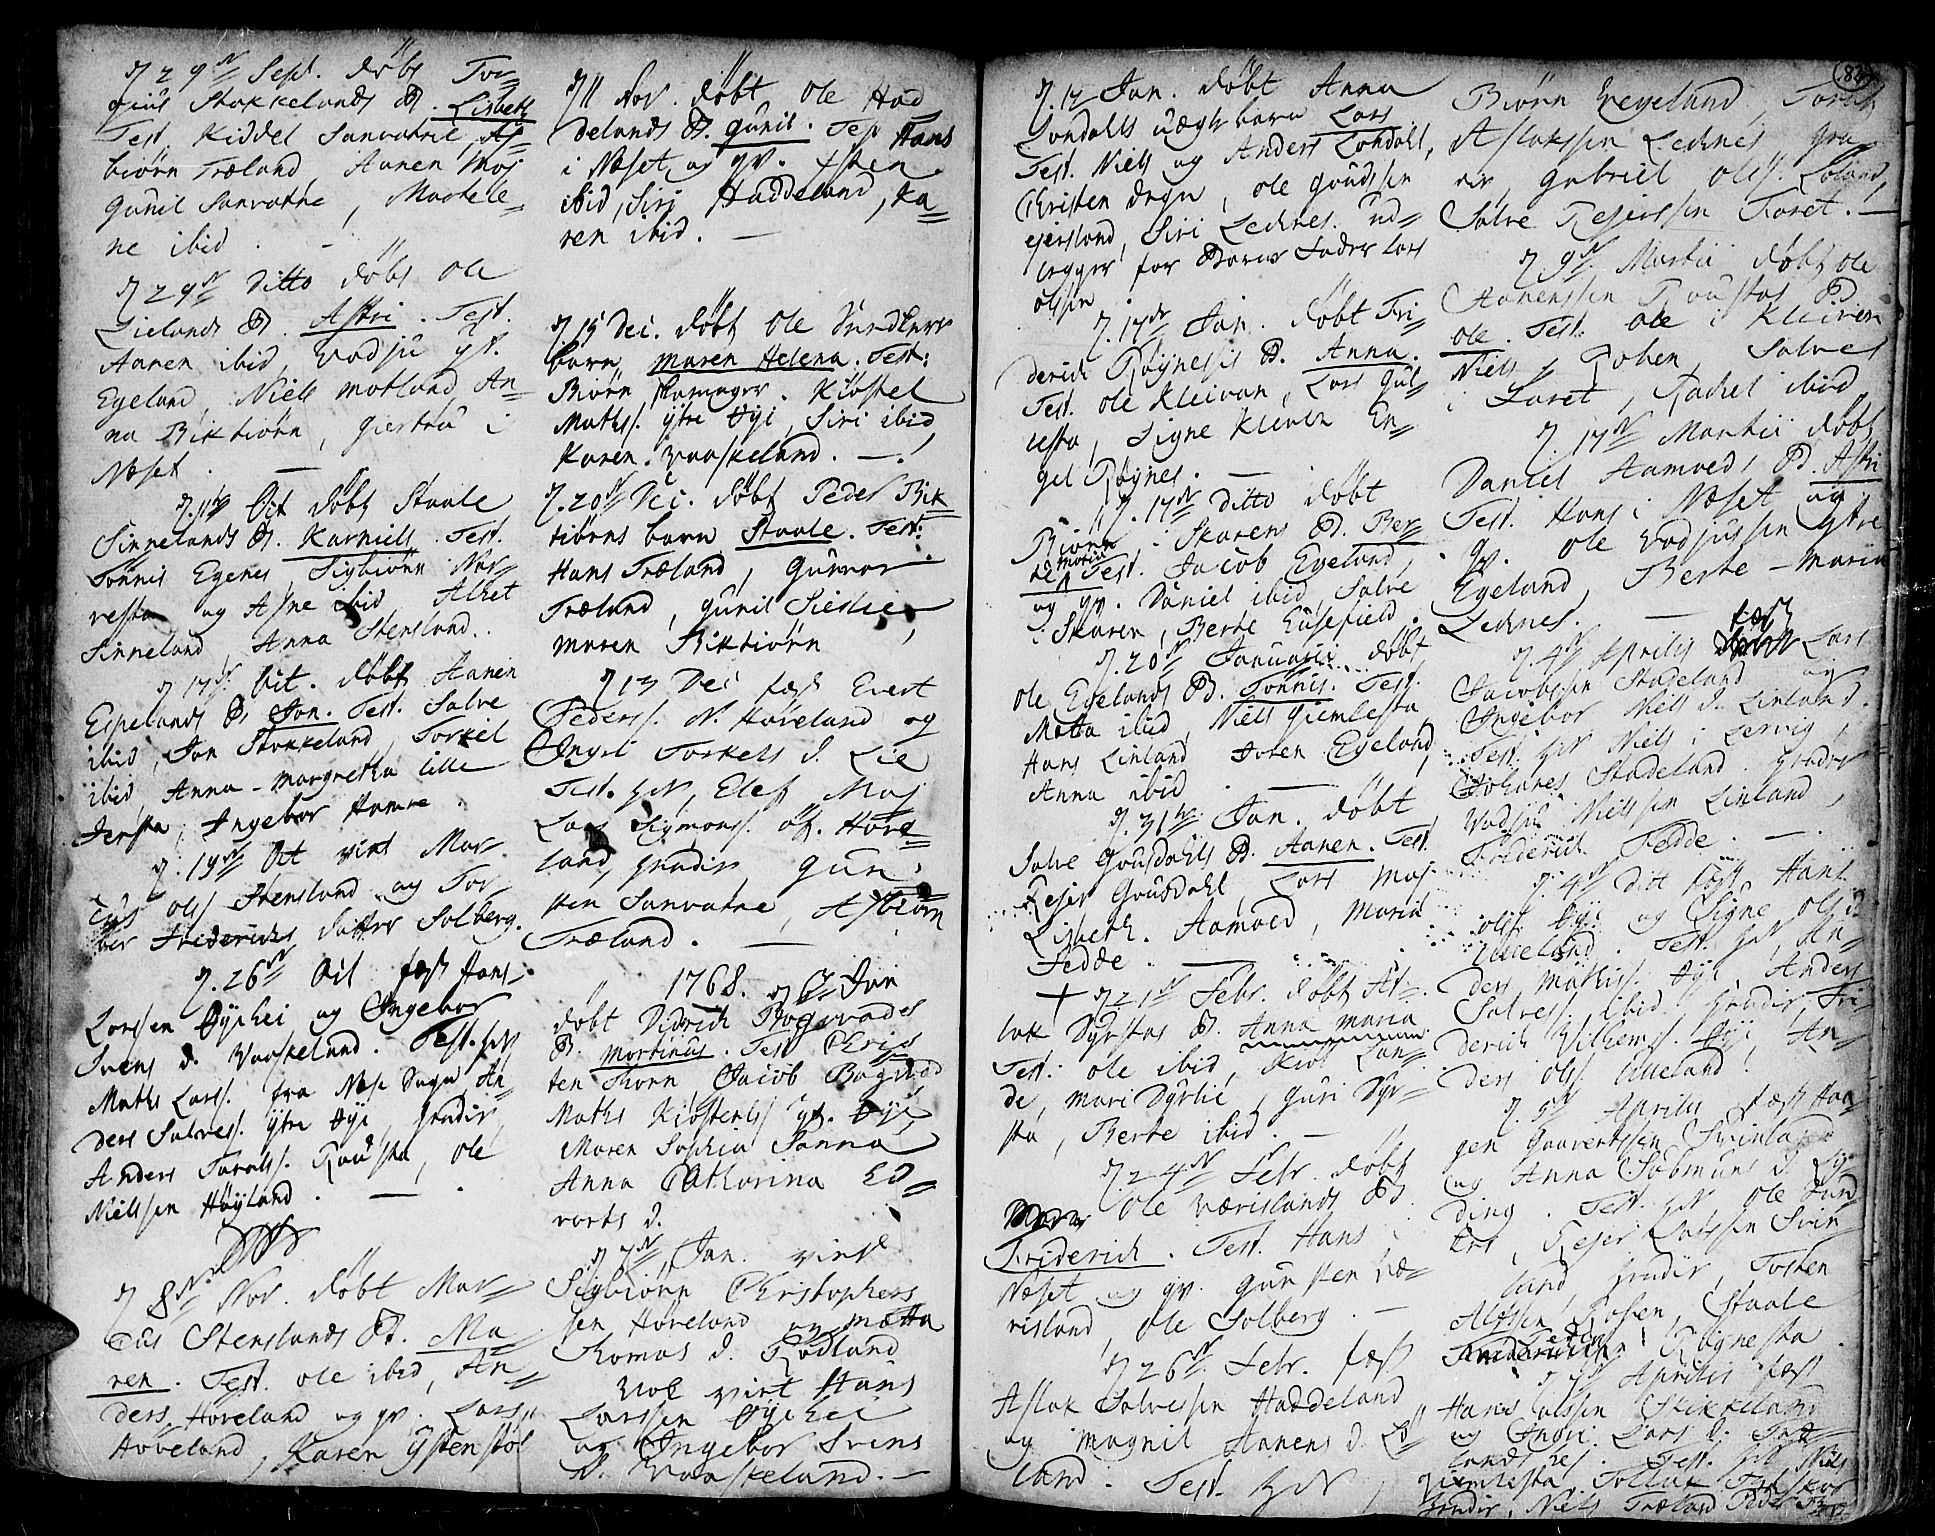 d 29de Sept. døbt Tor-
gius Stakkelands B. Lisbeth
Test. Kiddel Sanvatne, As-
biørn Træland, Aanen Moj
Gunil Sanvatne, Martele-
ne ibid.
d 29de Ditto døbt Ole
Lielands B. Astri. Test.
Aanen ibid, Vadju yt.
Egeland, Niels Motland, An-
na Birktiørn, Giertru i
Næset.
d. 11te Oct døbt Staale
Sinnelands B. Karniels. Test.
Tønnis Egenes, Sigbiørn Nor-
resta og Asne ibid, Alhet
Sinneland, Anna Stensland.
d 17de Oct. døbt Aanen
Espelands B. Jon. Test. Salve
ibid, Jon Stakkeland, Torkel
ibid, Anna-Margretha Lille
Jersta, Ingebor Hamre.
d. 19de Oct viet Mar-
cus Ols. Stensland og Tor-
ber Friderichs datter Solberg.
d. 26de Oct fæst Hans
Larssen Øÿehei og Ingebor
Svens d. Vaaskeland. Test. hr
Maths Larss. fra Næs Sogn An-
ders Salvess. ÿtre Øye, hendis
Anders Taralss. Rausta, Ole
Nielssen Høyland.
d 8de Nov. døbt Mar-
cus Stenslands B. Ma-
ren. Test. Ole ibid, An-
ders Høveland og qv. Lars
Høveland, Karen ÿstenstøl
d 11 Nov. døbt Ole Had
delands B. Gunil. Test Hans
i Næset og qv. Esten
ibid, Siri Haddeland, Ka-
ren ibid.
d. 15 Dec. døbt Ole
barn Maren Helena. Test.
Biørn Skomager, Kiøstel
Mathss. ÿtre Øÿe, Siri ibid
Karen Vaaskeland.
d. 20de Dec. døbt Peder Birk
tiørns barn Staale. Test.
Hans Træland, Gunvor
Træland, Gunil
Maren Birktiørn
d 17 Dec fæst Evert
Pederss. N. Høveland og
Ingri Torkels d. Lie
Test. hr, Elef Moj
Lars Sigmons. øf. Høve-
land, hendis Gun-
sten Sanvatne, Asbiørn
Træland.
1768. d 6 Jan
døbt Didrich Bogevades
B. Martinus. Test Chris
ten Thorn Jacob Bogvad
Maths Kiøstelss ÿt. Øÿe,
Maren Sophia Sanna
Anna Catharina Ed-
varts d.
d 7de Jan. viet
Sigbiørn Christophers
sen Høveland og Mætta
Thomas d. Rødland
Nok viet Hans
Larssen Øÿehei
og Ingebor Svens
d. Vaaskeland.
d. 12 Jan. døbt Anna
Londals uægte barn Lars
Test. Niels og Anders Londahl,
Christen Degn, Ole Goudssen
ejersland, Siri Lednes. Ud-
legger for Barne Fader Lars
Olssen
d. 17de Jan. døbt Fri-
derich Røÿnesis B. Anna.
Test. Ole Kleivan, Lars Gul-
lesta, Signe Kleven En-
gel Røÿnes.
d. 17de Ditto døbt
Biørn i Skarens B. Ber-
te Maria Test. Jacob Egeland,
og qv. Daniel ibid, Salve
i Skaren, Berte Husefield.
d. 20de Januarii døbt
Ole Egelands B. Tønnis. Test.
Matta ibid, Niels Giemlesta
Hans Linland Joren Egeland,
Anna ibid
d. 31te Jan. døbt
Salve Gousdahls B. Aanen. Test
Rejer Gousdahl, Lars Moj
Lisbeth Aamoed, Maria
Fedde.
+ d 21de Febr. døbt As-
lak Dyrstas B. Anna Maria
Test. Ole ibid, Kiøl Lan-
de, Mari Dyrlie, Guri Dyr-
sta, Berte ibid.
d 24de Febr. døbt
Ole Værislands B.
Friderich. Test. Hans i
Næset og qv. Gunsten Væ-
risland, Ole Solberg.
d 26de Febr. fæst
Aslak Salvessen Haddeland
og Magnil Aanens d. Lø-
land. Test. hr
Biørn Evegeland, Tarald
Aslakssen Lednes, hen-
dis Gabriel Olss. Løland,
Salve Rejerssen Faret.
d 9de Martii døbt Ole
Aanenssen Raustas B.
Ole. Test. Ole i Kleiven
Niels Roben, Salve
i Faret, Rachel ibid
d. 17de Martii døbt
Daniel Aamoeds B. Astri
Test. Hans i Næset og
qv. Ole Vadjussen ÿtre
Egeland, Berte-Maria
Lednes.
d. 4de Aprilis fæst Lars
Jacobssen Stadeland og
Ingebor Niels d. Linland.
Test. hr Niels i Lervig,
Johanes Stadeland. hendes
Vadjus Nielssen Linland,
Friderich Fedde.
d. 4de Ditt fæst Hans
Olss. Øye og Signe Ols d.
Ulleland. Test. hr An-
ders Mathiss. Øÿe, Anders
Salvess. ibid. hendis Fri-
derich Vilhemss. Øye, An-
ders Olss. Ulleland.
d. 5te Aprilis fæst Haa-
gen Gauertssen Svinland
og Anna Sobmuns d. Ly-
ding. Test. hr Ole
Rejer Larssen Svin-
land, hendis, Tosten
Alfssen Roben, Staale
Teten Røÿnesta.
d 7de Aprilis fæst
Hans Olssen Skikkeland
og Ingri Lars d.
landshei. Test. hr Niels
Giemlesta, Tollak
hendis, Niels Træland Peder